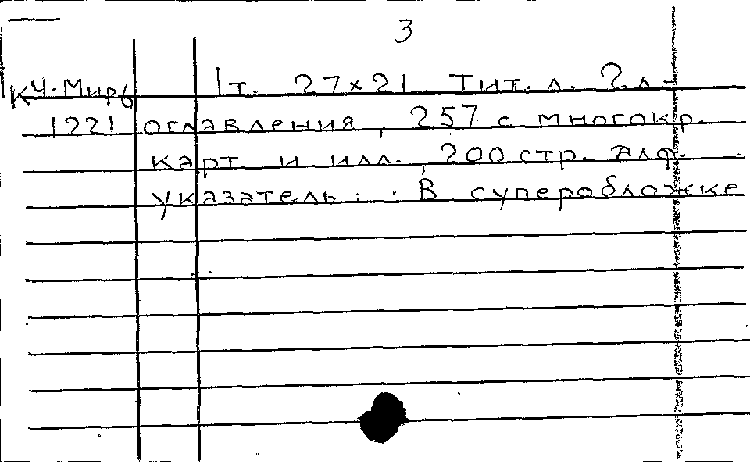 3
КЧ. Мирь 1 т. 27×21 Тит. л. 2 л.
1221 оглавления, 257 с многокр.
карт и илл., 200 стр. Алф.
указатель. В суперобложке